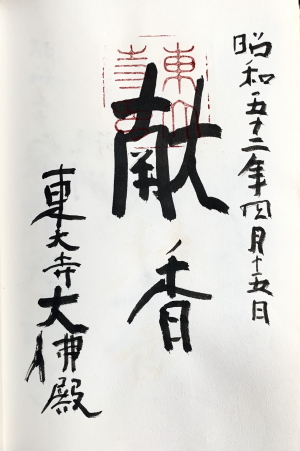 昭和五十二年四月十五日
献香
東大寺大佛殿